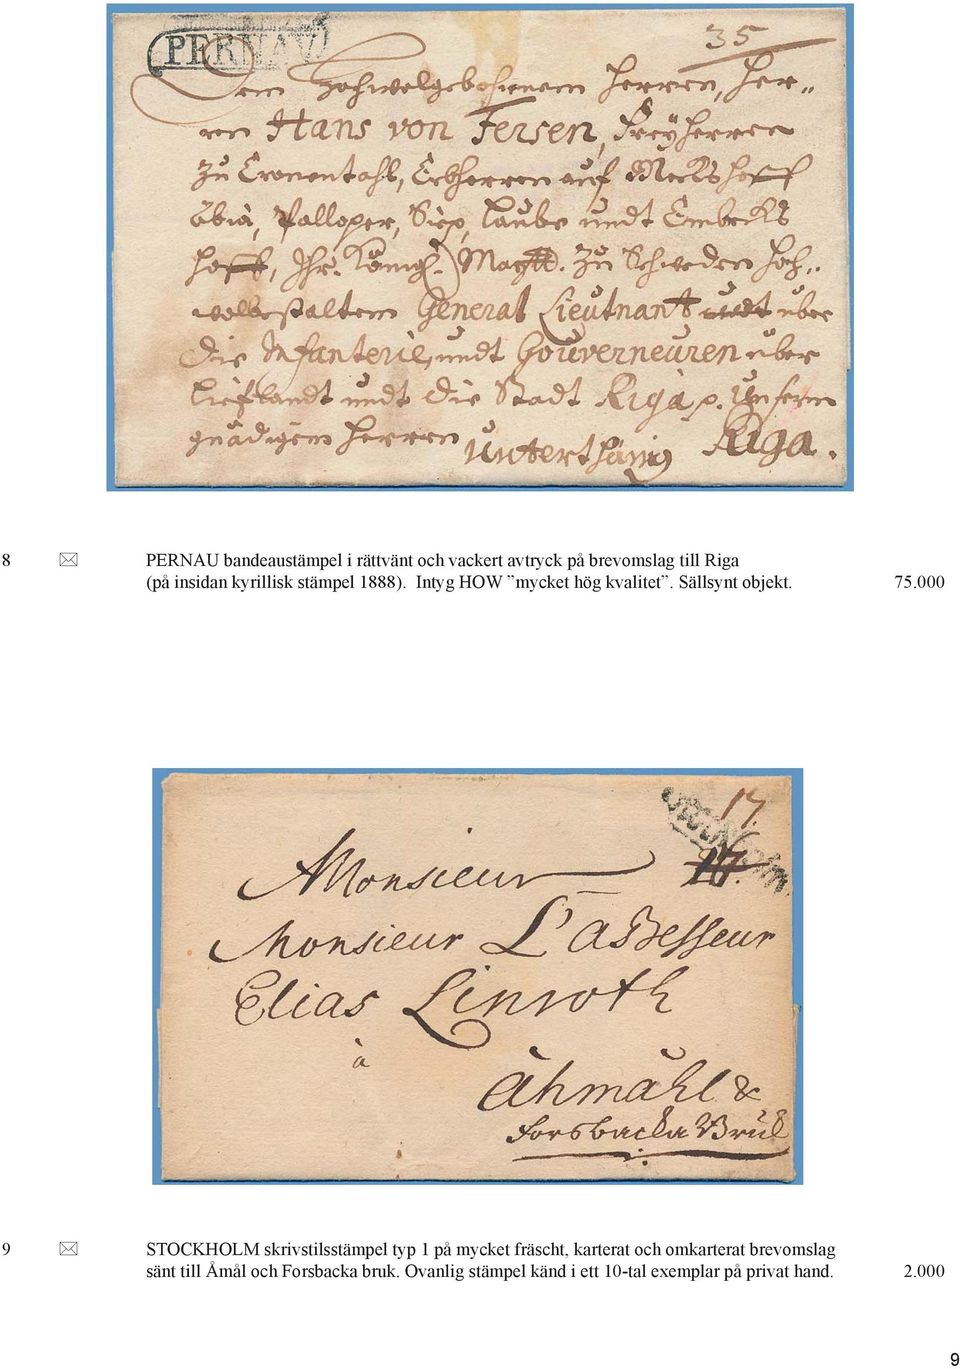 PERNAV
35
Dem Hochwolgebohrnem Herren, Her-
ren Hans von Fersen, Freyherren
zu Cronentahl, Erbherren auf
Abia, Palloper, Siep, Laube undt Embecks
hoff, Ihr. Königl. Maytt. zu Schweden Hoch-
wolbestaltem General Lieutnant über
die Infanterie, undt Gouverneuren über
Lieflandt undt die Stadt Riga p. Unserm
gnädigem Herren Unterthänig Riga.
8 PERNAU bandeaustämpel i rättvänt och vackert avtryck på brevomslag till Riga
(på insidan kyrillisk stämpel 1888). Intyg HOW ”mycket hög kvalitet”. Sällsynt objekt. 75.000
17.
Monsieur
Monsieur L'Assesseur
Elias Linroth
à
Åhmåhl &
Forsbacka Bruk
9 STOCKHOLM skrivstilsstämpel typ 1 på mycket fräscht, karterat och omkarterat brevomslag
sänt till Åmål och Forsbacka bruk. Ovanlig stämpel känd i ett 10-tal exemplar på privat hand. 2.000
9